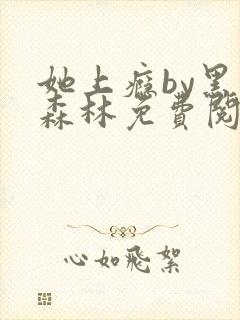 她上瘾by黑
森林免费阅
心如飛絮